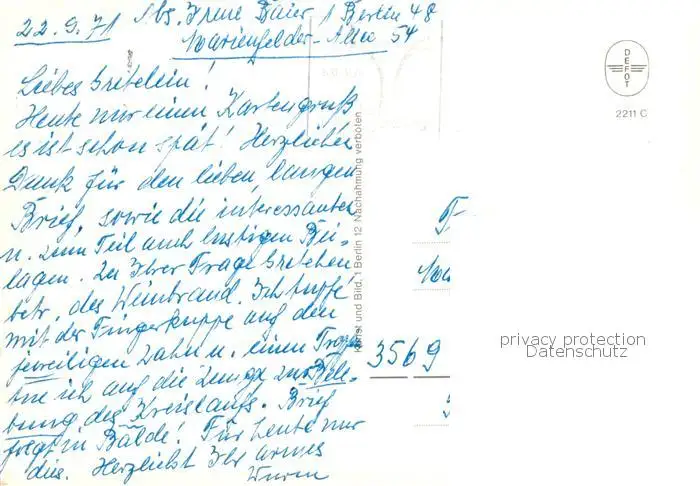 22.9.71 Abs. Irene Baier, 1 Berlin 48
Marienfelder-Allee 54
Liebes Gretelein!
Heute nur einen Kartengruß
es ist schon spät! Herzlichen
Dank für den lieben, langen
Brief, sowie die interessanten
u. zum Teil auch lustigen Bei-
lagen. Zu Ihrer Frage Gretchen
betr. des Weinbrand. Ich tupfe
mit der Fingerkuppe auf den
jeweiligen Zahn u. einen Tropfen
tue ich auf die Zunge zur Bele-
bung des Kreislaufs. Brief
folgt in Bälde! Für heute nur
dies. Herzlichst Ihr armes
Wurm
Kunst und Bild, 1 Berlin 12 Nachahmung verboten
DEFOT
2211 C
3569
privacy protection
Datenschutz